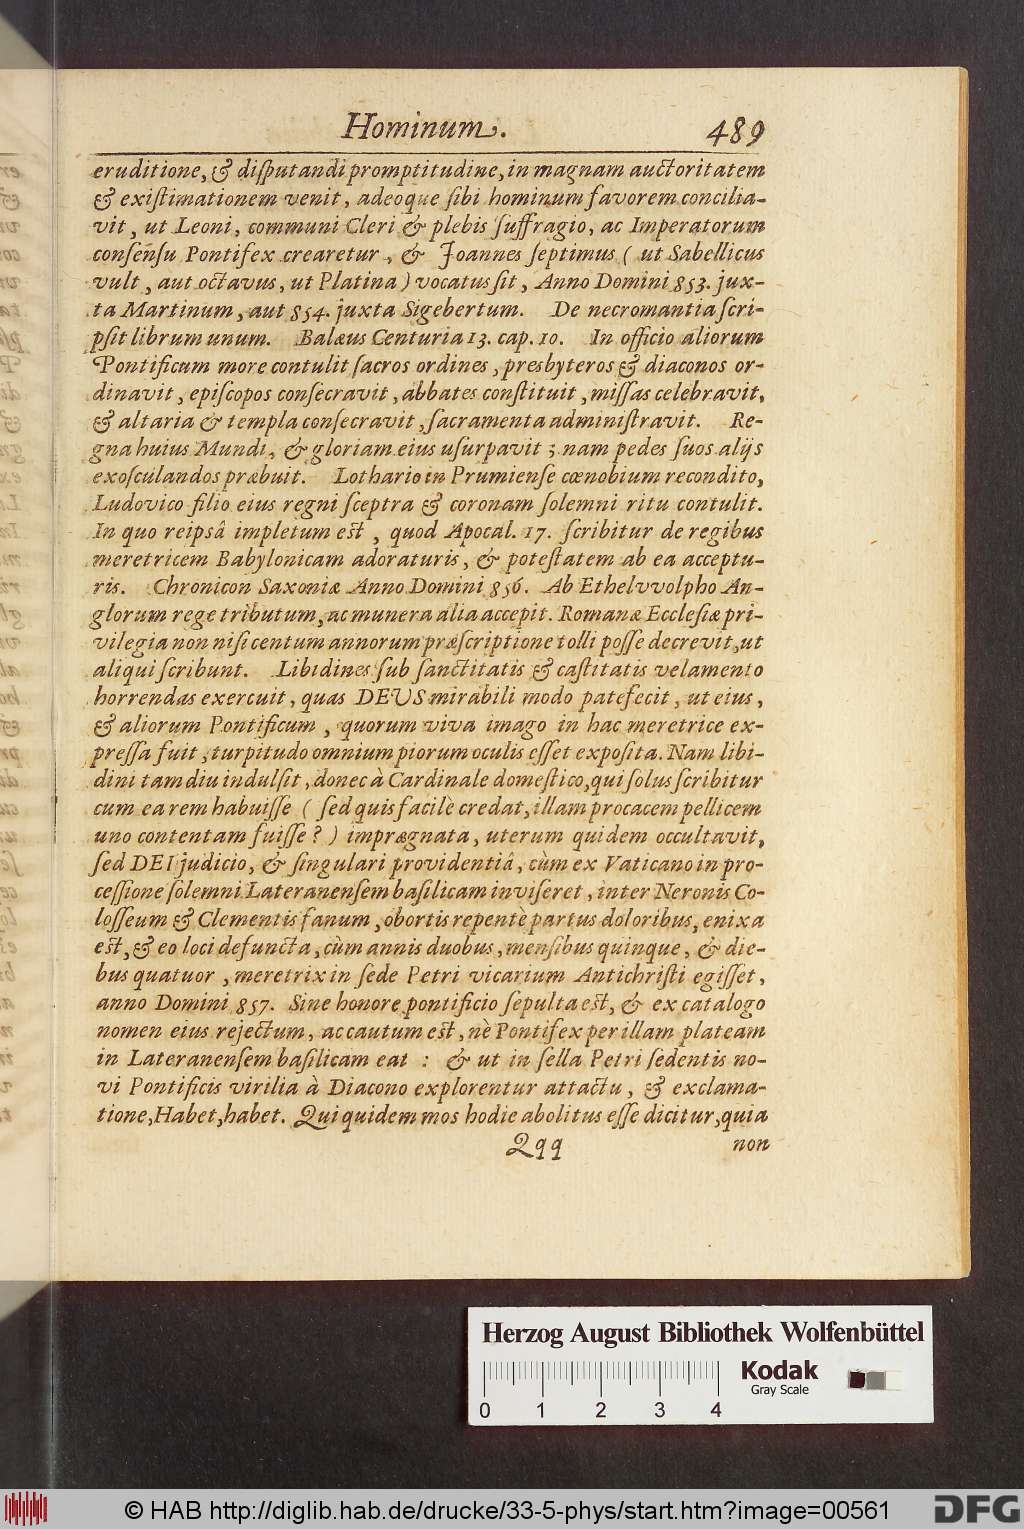 Hominum. 489
eruditione, & diſputandi promptitudine, in magnam auctoritatem
& exiſtimationem venit, adeoque ſibi hominum favorem concilia-
vit, ut Leoni, communi Cleri & plebis ſuffragio, ac Imperatorum
conſenſu Pontifex crearetur, & Joannes ſeptimus ( ut Sabellicus
vult, aut octavus, ut Platina ) vocatus ſit, Anno Domini 853. jux-
ta Martinum, aut 854. juxta Sigebertum. De necromantia ſcri-
pſit librum unum. Balæus Centuria 13. cap. 10. In officio aliorum
Pontificum more contulit ſacros ordines, presbyteros & diaconos or-
dinavit, epiſcopos conſecravit, abbates conſtituit, miſſas celebravit,
& altaria & templa conſecravit, ſacramenta adminiſtravit. Re-
gna huius Mundi, & gloriam eius uſurpavit ; nam pedes ſuos alijs
exoſculandos præbuit. Lothario in Prumienſe cœnobium recondito,
Ludovico filio eius regni ſceptra & coronam ſolemni ritu contulit.
In quo reipsâ impletum eſt, quod Apocal. 17. ſcribitur de regibus
meretricem Babylonicam adoraturis, & poteſtatem ab ea acceptu-
ris. Chronicon Saxoniæ Anno Domini 856. Ab Ethelvvolpho An-
glorum rege tributum, ac munera alia accepit. Romanæ Eccleſiæ pri-
vilegia non niſi centum annorum præſcriptione tolli poſſe decrevit, ut
aliqui ſcribunt. Libidines ſub ſanctitatis & caſtitatis velamento
horrendas exercuit, quas DEUS mirabili modo patefecit, ut eius,
& aliorum Pontificum, quorum viva imago in hac meretrice ex-
preſſa fuit, turpitudo omnium piorum oculis eſſet expoſita. Nam libi-
dini tamdiu indulſit, donec à Cardinale domeſtico, qui ſolus ſcribitur
cum ea rem habuiſſe ( ſed quis facilè credat, illam procacem pellicem
uno contentam fuiſſe ? ) imprægnata, uterum quidem occultavit,
ſed DEI judicio, & ſingulari providentiâ, cùm ex Vaticano in pro-
ceſſione ſolemni Lateranenſem baſilicam inviſeret, inter Neronis Co-
loſſeum & Clementis fanum, obortis repentè partus doloribus, enixa
eſt, & eo loci defuncta, cùm annis duobus, menſibus quinque, & die-
bus quatuor, meretrix in ſede Petri vicarium Antichriſti egiſſet,
anno Domini 857. Sine honore pontificio ſepulta eſt, & ex catalogo
nomen eius rejectum, ac cautum eſt, nè Pontifex per illam plateam
in Lateranenſem baſilicam eat : & ut in ſella Petri ſedentis no-
vi Pontificis virilia à Diacono explorentur attactu, & exclama-
tione, Habet, habet. Qui quidem mos hodie abolitus eſſe dicitur, quia
Qqq non
Herzog August Bibliothek Wolfenbüttel
Kodak
Gray Scale
0 1 2 3 4
© HAB http://diglib.hab.de/drucke/33-5-phys/start.htm?image=00561
DFG